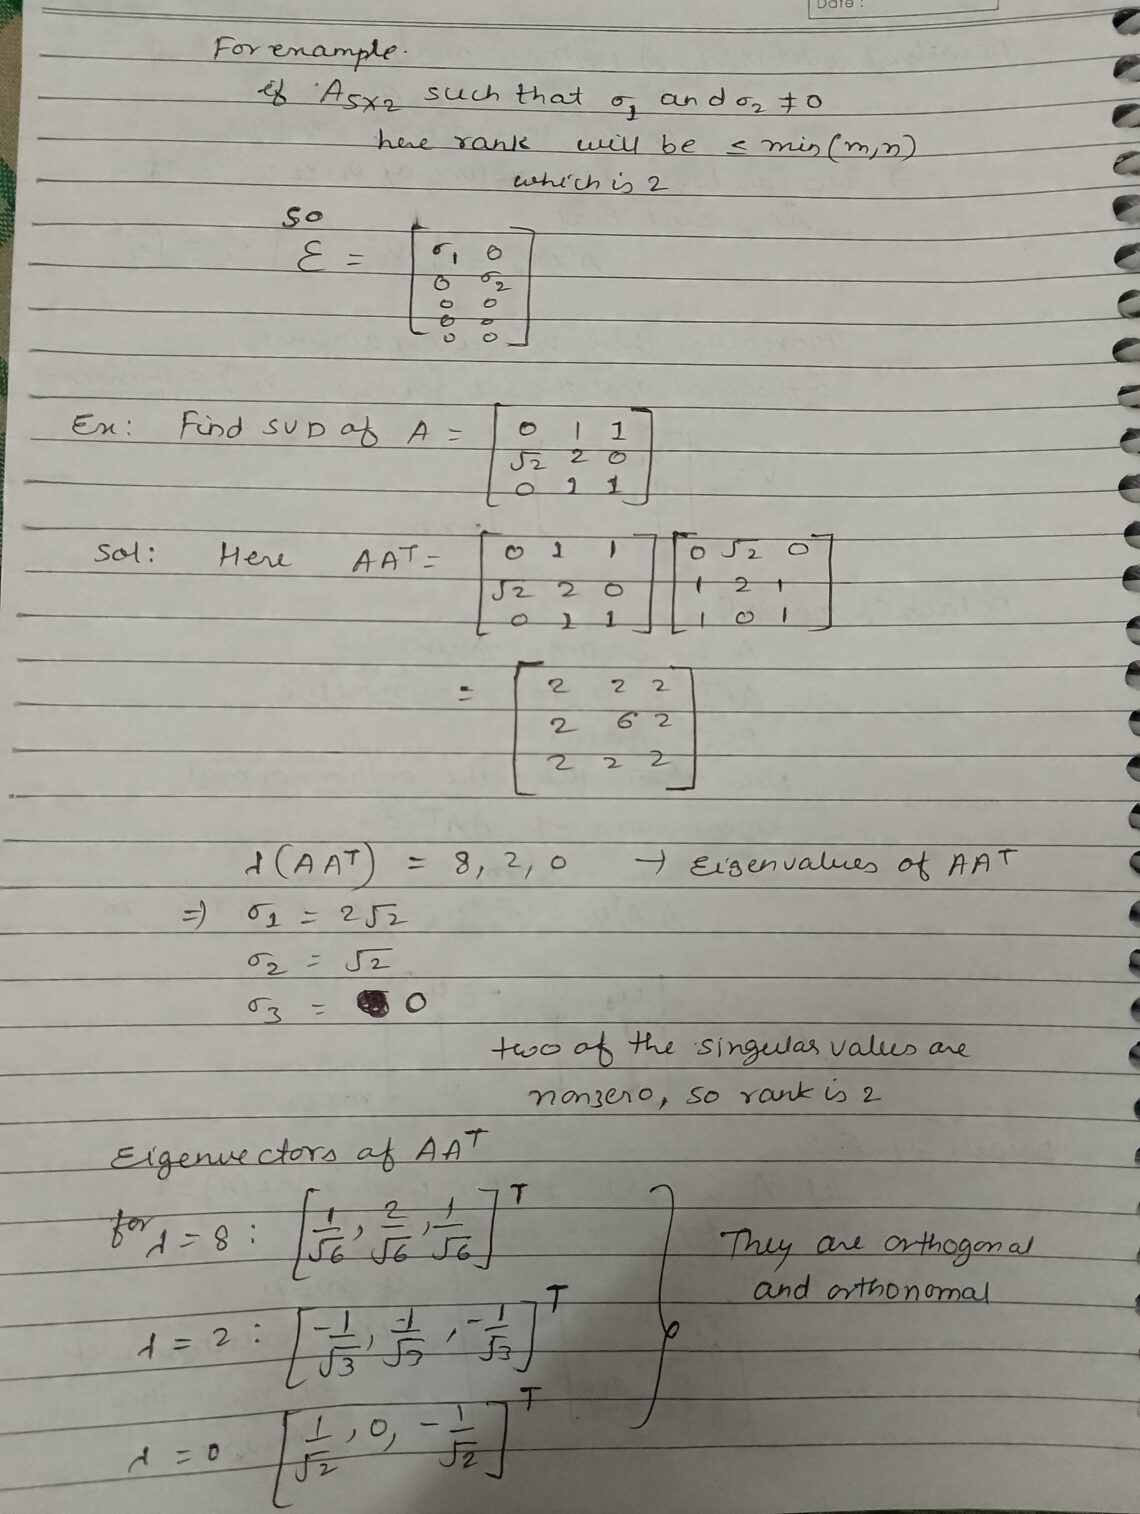 Date:
For example.
if A5x2 such that σ1 and σ2 ≠ 0
here rank will be ≤ min(m,n)
which is 2
so
Ɛ = [ σ1 0
0 σ2
0 0
0 0
0 0 ]
Ex: Find SVD of A = [ 0 1 1
√2 2 0
0 1 1 ]
Sol: Here AAᵀ = [ 0 1 1 ] [ 0 √2 0 ]
[ √2 2 0 ] [ 1 2 1 ]
[ 0 1 1 ] [ 1 0 1 ]
= [ 2 2 2
2 6 2
2 2 2 ]
λ(AAᵀ) = 8, 2, 0 → Eigenvalues of AAᵀ
⇒ σ1 = 2√2
σ2 = √2
σ3 = 0
two of the singular values are
nonzero, so rank is 2
Eigenvectors of AAᵀ
for λ = 8 : [1/√6, 2/√6, 1/√6]ᵀ
They are orthogonal
and orthonomal
λ = 2 : [-1/√3, 1/√3, -1/√3]ᵀ
λ = 0 [1/√2, 0, -1/√2]ᵀ